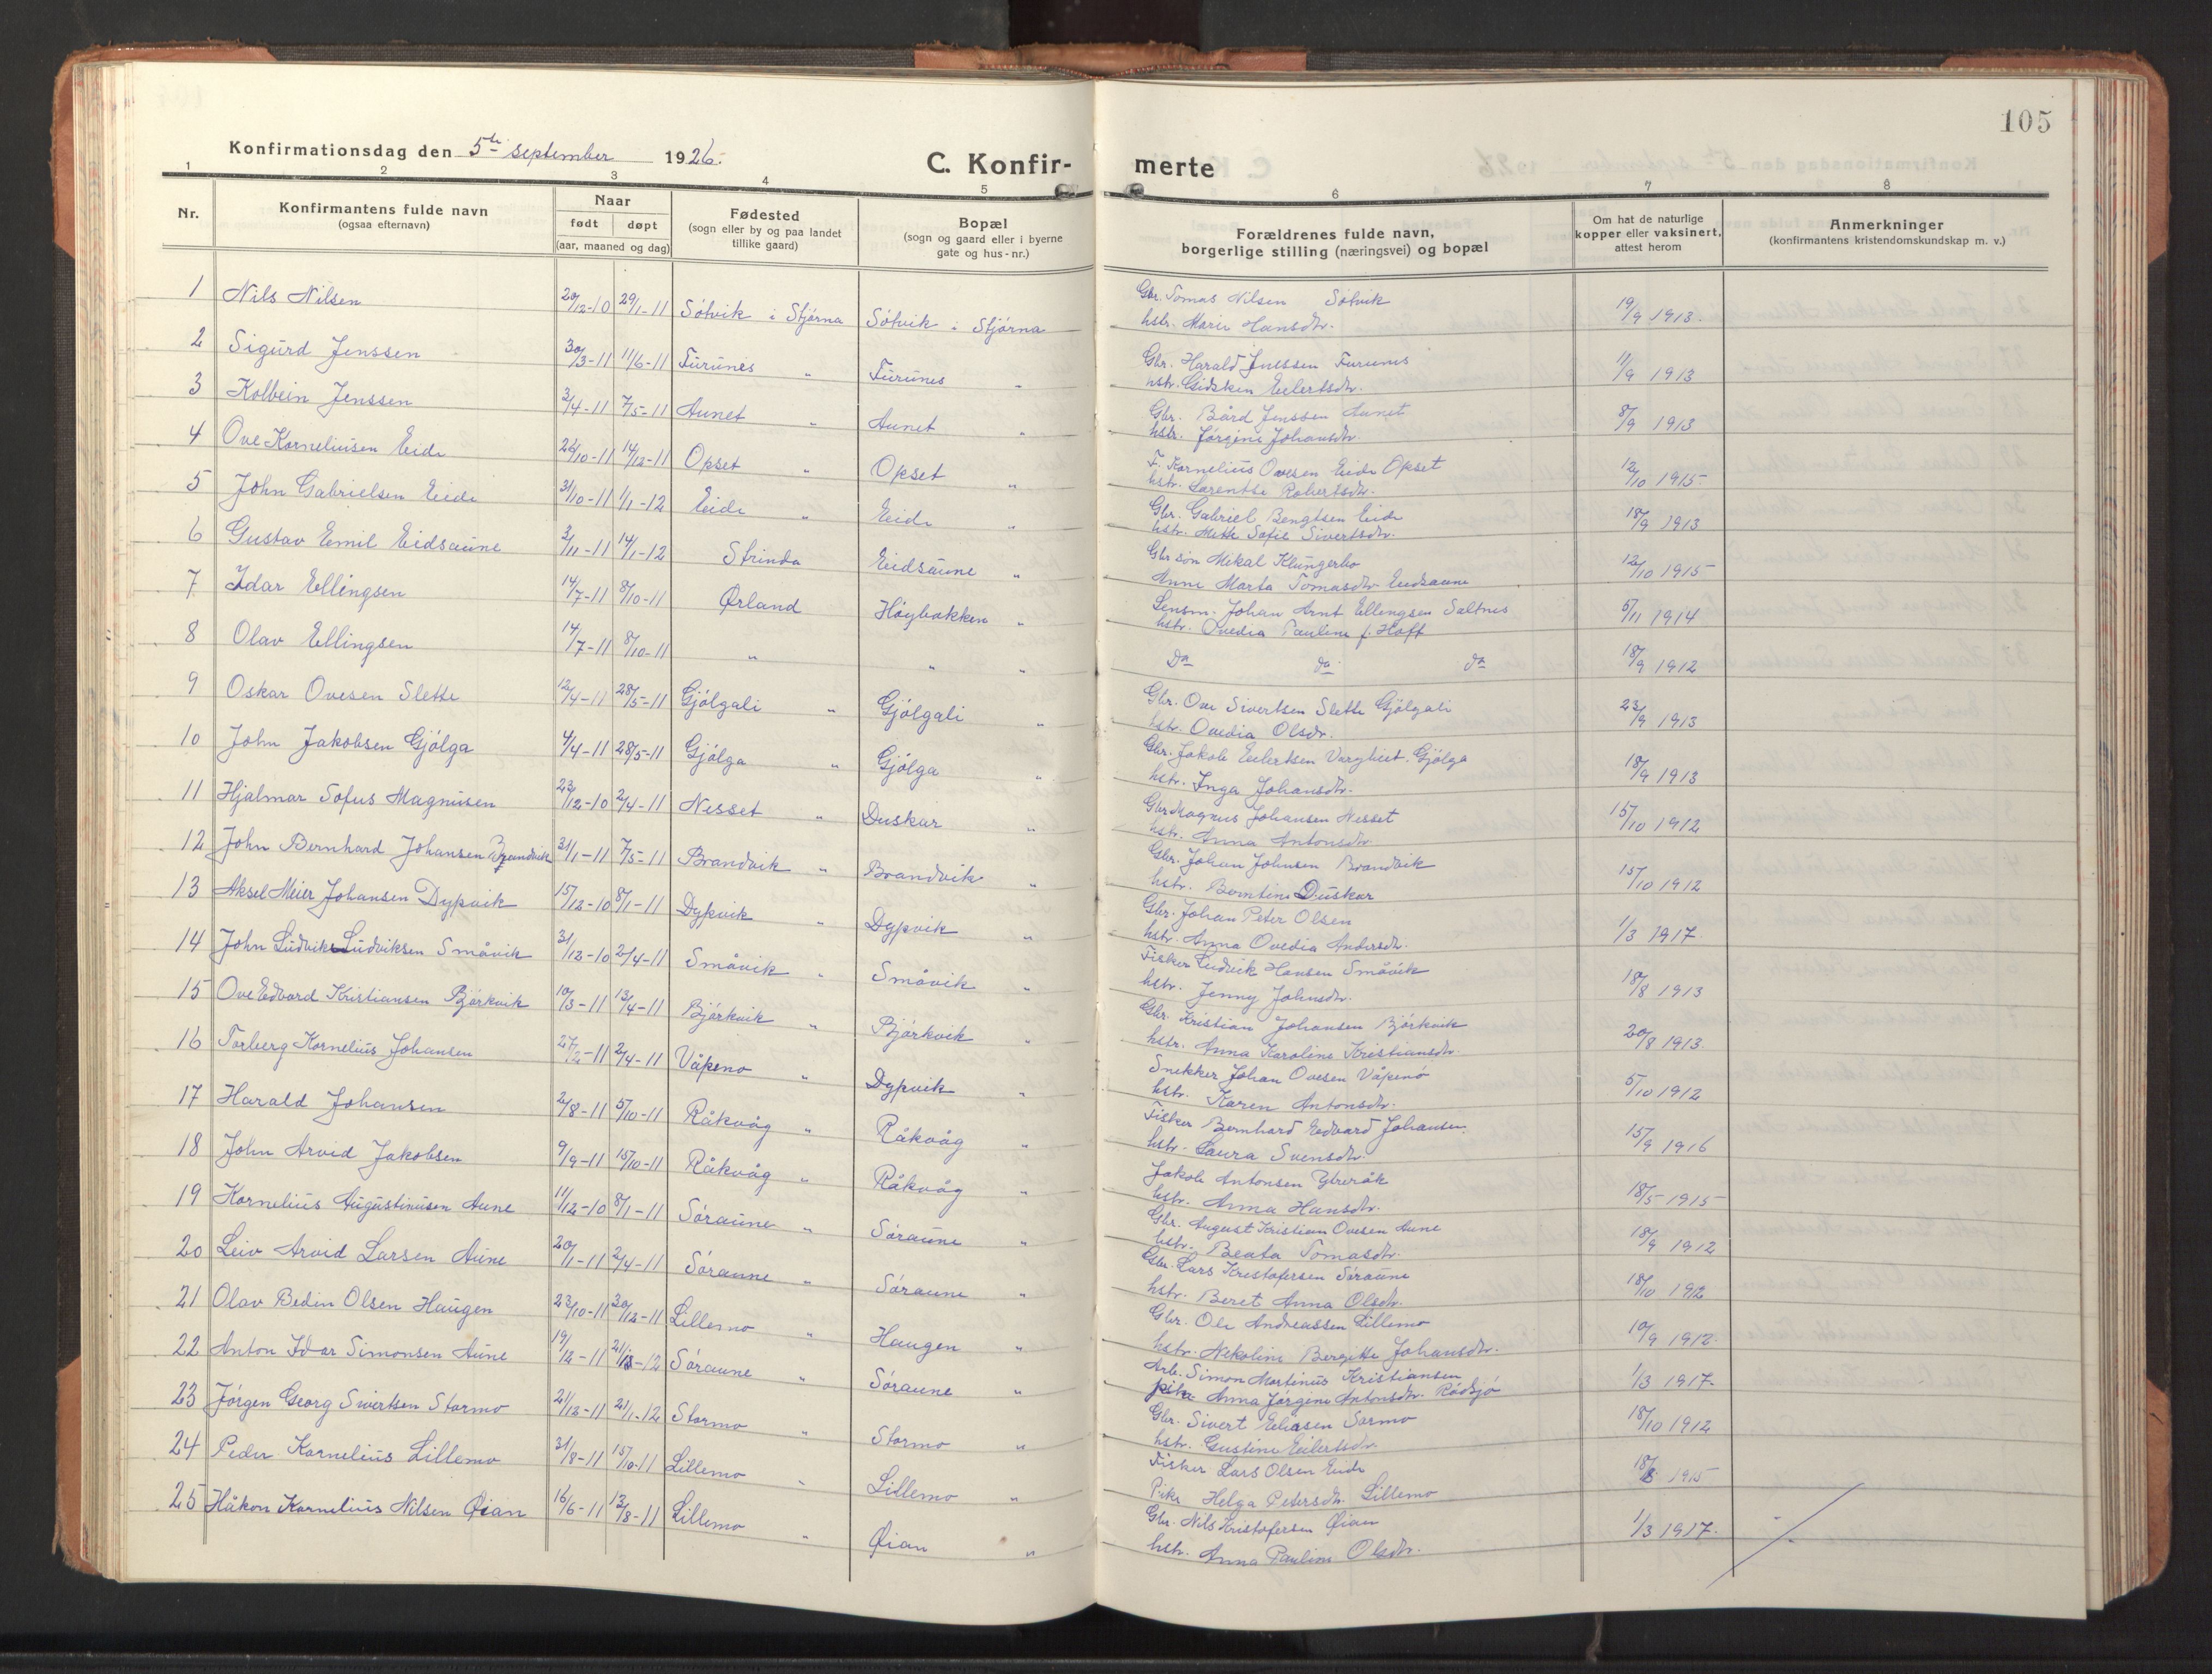 105
Konfirmationsdag den 5te september 1926.
C. Konfir-
merte
1 2 3 4 5 6 7 8
Nr.
Konfirmantens fulde navn
(ogsaa efternavn)
Naar
født døpt
(aar, maaned og dag)
Fødested
(sogn eller by og paa landet
tillike gaard)
Bopæl
(sogn og gaard eller i byerne
gate og hus-nr.)
Forældrenes fulde navn,
borgerlige stilling (næringsvei) og bopæl
Om hat de naturlige
kopper eller vaksinert,
attest herom
Anmerkninger
(konfirmantens kristendomskundskap m. v.)
1 Nils Nilsen 20/12-10 29/1-11 Sólvik i Stjórna Sólvik i Stjórna Gbr. Tomas Nilsen Sólvik 19/9 1913.
hstr. Marie Hansdtr.
2 Sigurd Jenssen 30/3-11 11/6-11 Furunes " Furunes " Gbr. Harald Jenssen Furunes 11/9 1913
hstr. Gidsken Eilertsdtr.
3 Kolbein Jenssen 3/4-11 7/5-11 Aunet " Aunet " Gbr. Bård Jenssen Aunet 8/9 1913
hstr. Jórgine Johansdtr.
4 Ove Korneliusen Eide 22/10-11 14/12-11 Opset " Opset " F. Kornelius Ovesen Eide Opset 12/10 1915.
hstr. Larentse Robertsdtr.
5 John Gabrielsen Eide 31/10-11 1/1-12 Eide " Eide " Gbr. Gabriel Bengtsen Eide 18/9 1913
hstr. Mette Sofie Sivertsdtr.
6 Gustav Emil Eidsaune 2/11-11 14/1-12 Strinda Eidsaune " Gbr són Mikal Klungerbo 12/10 1915
Anne Marta Tomasdtr Eidsaune
7 Idar Ellingsen 14/7-11 8/10-11 Ørland Hóybakken " Lensm. Johan Arnt Ellingsen Saltnes 5/11 1914
hstr. Ovedia Pauline f. Hoff
8 Olav Ellingsen 14/7-11 8/10-11 " " " Do do do 18/9 1912
9 Oskar Ovesen Slette 12/4-11 28/5-11 Gjólgali " Gjólgali " Gbr. Ove Sivertsen Slette Gjólgali 23/9 1913
hstr. Ovedia Olsdr.
10 John Jakobsen Gjólga 4/4-11 28/5-11 Gjólga " Gjólga " Gbr. Jakob Eilertsen Varghiet. Gjólga 18/9 1913
hstr. Inga Johansdtr.
11 Hjalmar Sofus Magnusen 23/12-10 2/4-11 Nesset " Duskar " Gbr Magnus Johansen Nesset 15/10 1912
hstr. Anna Antonsdtr.
12 John Bernhard Johansen Brandvik 31/1-11 7/5-11 Brandvik " Brandvik " Gbr. Johan Johnsen Brandvik 15/10 1912
hstr. Berntine Duskar
13 Aksel Meier Johansen Dypvik 15/12-10 8/1-11 Dypvik " Dypvik " Gbr. Johan Peter Olsen 1/3 1917.
hstr. Anna Ovedia Andersdtr.
14 John Ludviks Ludviksen Småvik 31/12-10 2/4-11 Småvik " Småvik " Fisker Ludvik Hansen Småvik 18/8 1913
hstr. Jenny Johnsdtr.
15 Ove Edvard Kristiansen Bjórkvik 10/3-11 13/4-11 Bjórkvik " Bjórkvik " Gbr. Kristian Johansen Bjórkvik 20/8 1913.
hstr. Anna Karoline Kristiansdtr.
16 Torberg Kornelius Johansen 27/2-11 2/4-11 Våpenó " Dypvik " Snekker Johan Ovesen Våpenó 5/10 1912
hstr. Karen Antonsdtr.
17 Harald Johansen 2/8-11 5/10-11 Råkvåg " Råkvåg " Fisker Bernhard Edvard Johansen. 15/9 1916
hstr. Laura Svensdtr.
18 John Arvid Jakobsen 9/9-11 15/10-11 Råkvåg " Råkvåg " Jakob Antonsen 18/5 1915
hstr. Anna Hansdtr.
19 Kornelius Augustinusen Aune 11/12-10 8/1-11 Sóraune " Sóraune " Gbr. August Kristian Ovesen Aune 18/9 1912
hstr. Beata Tomasdtr.
20 Leiv Arvid Larsen Aune 20/1-11 2/4-11 Sóraune " Sóraune " Gbr. Lars Kristofersen Sóraune 18/10 1912
hstr. Beret Anna Olsdtr.
21 Olav Bedin Olsen Haugen 23/10-11 30/12-11 Lillemo " Haugen " Gbr. Ole Andreassen Lillemo 10/9 1912.
hstr. Nikoline Bergitte Johansdtr.
22 Anton Idar Simonsen Aune 19/12-11 -12 Sóraune " Sóraune " Arb. Simon Martinus Kristiansen 1/3 1917.
pike Anna Jórgine Antonsdtr. Ródsjó
23 Jórgen Georg Sivertsen Stormo 21/12-11 21/1-12 Stormo " Stormo " Gbr. Sivert Eliasen Sormo 18/10 1912
hstr. Gustine Eilertsdtr.
24 Peder Kornelius Lillemo 31/8-11 15/10-11 Lillemo " Lillemo " Fisker Lars Olsen Eide 18/8 1915
Pike Helga Petersdtr. Lillemo
25 Håkon Kornelius Nilsen Øian 16/6-11 13/8-11 Lillemo " Øian " Gbr. Nils Kristofersen Øian 1/3 1917.
hstr. Anna Pauline Olsdtr.